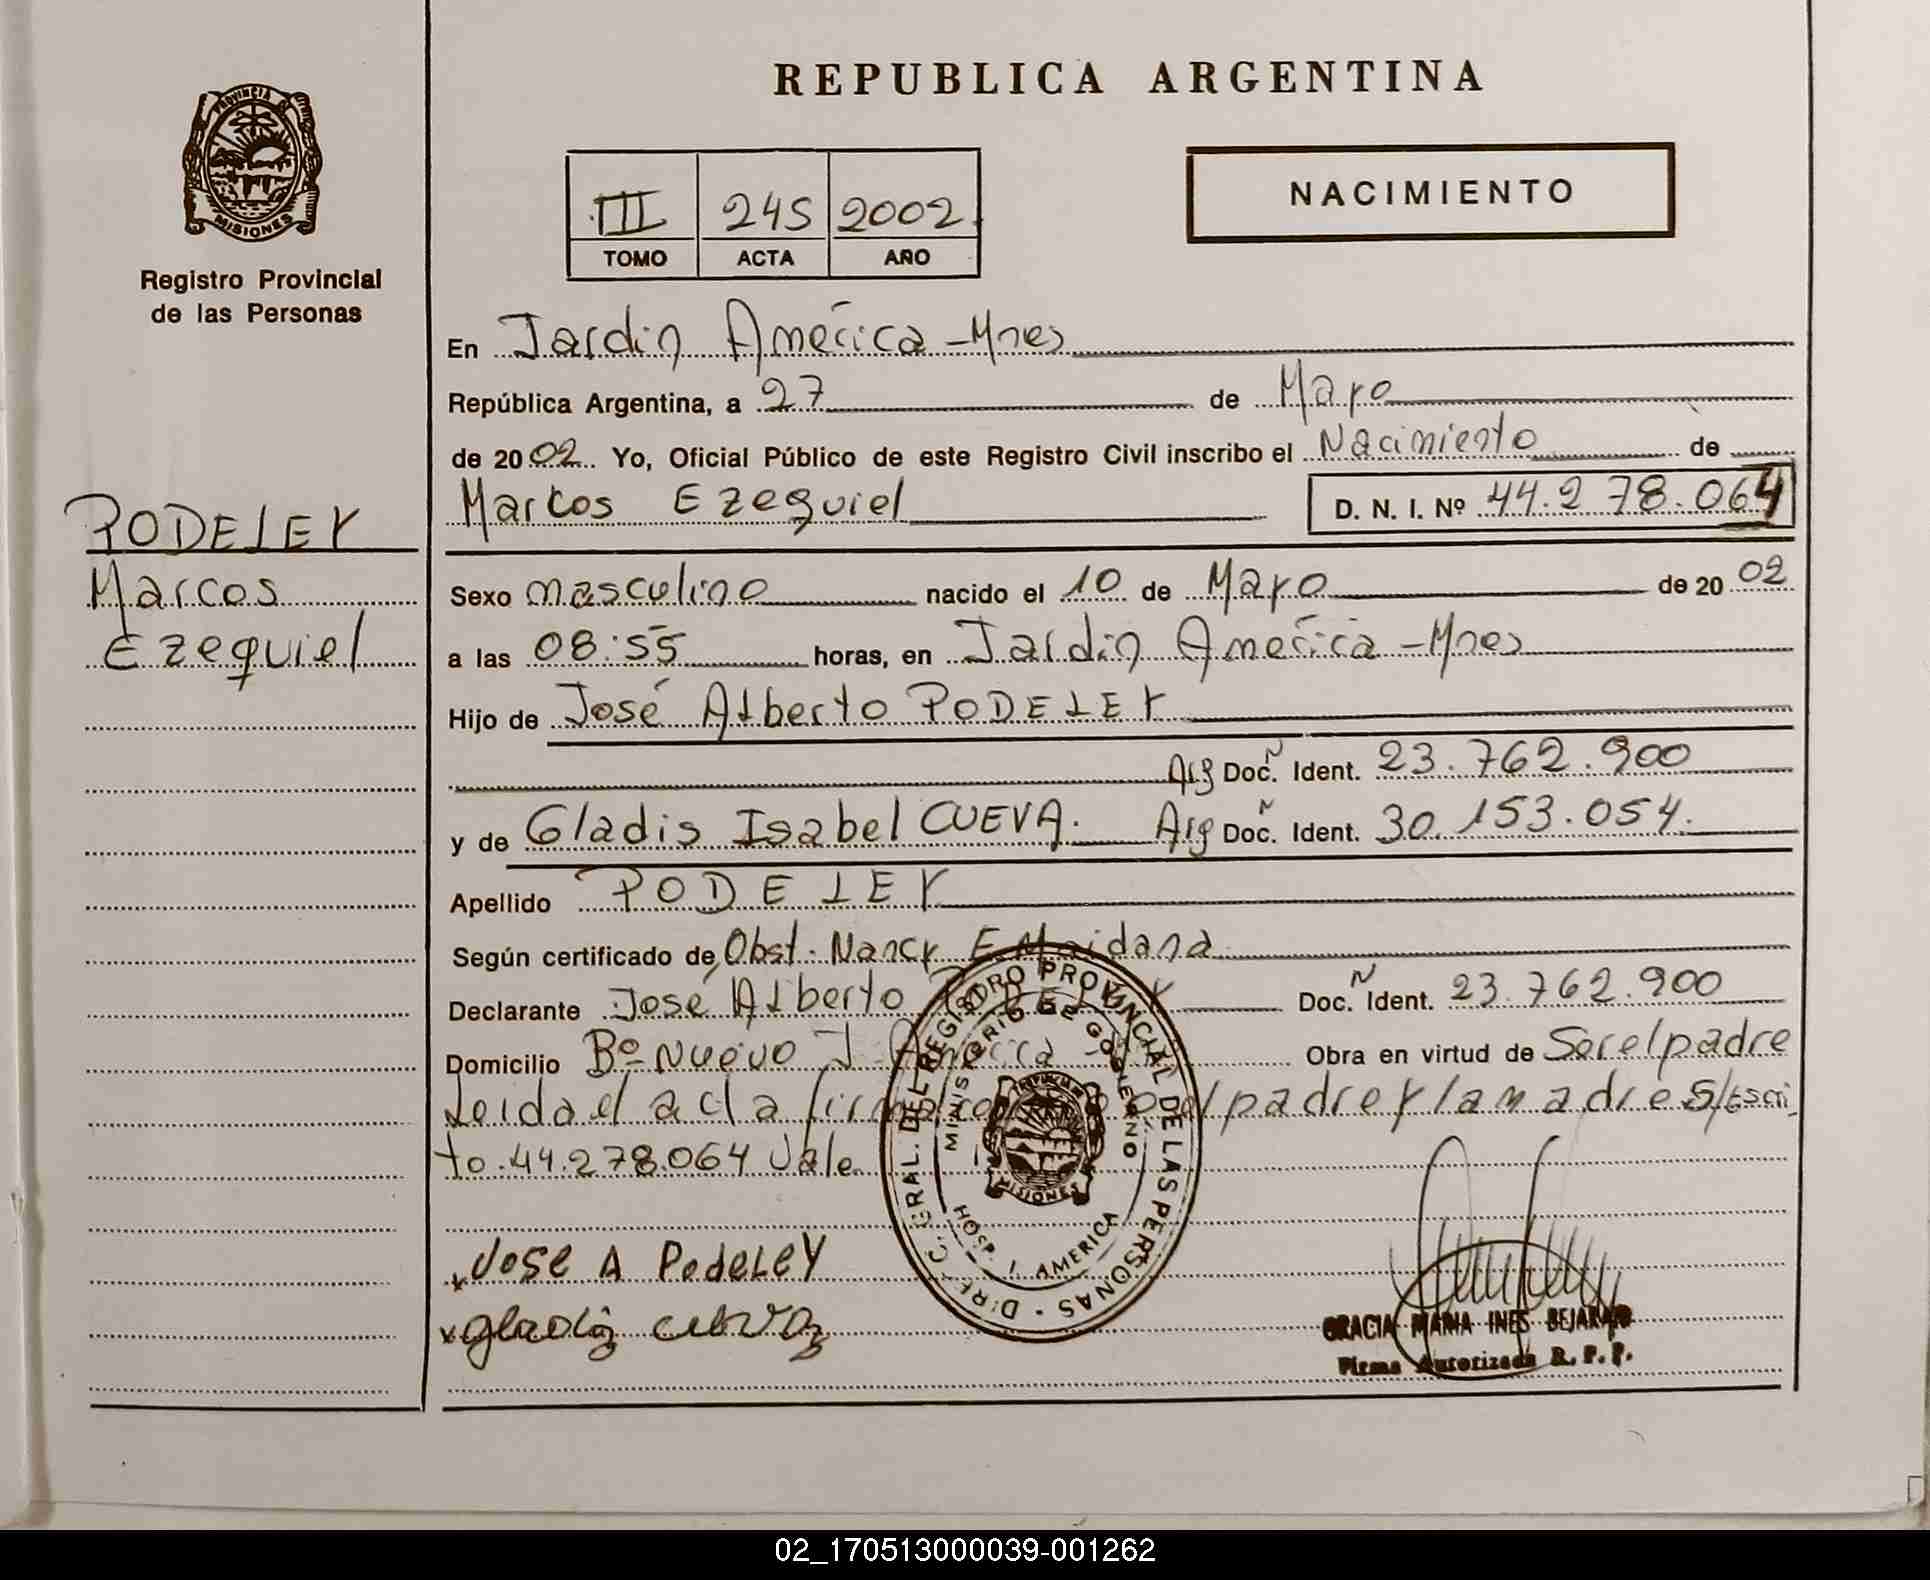 REPUBLICA ARGENTINA
PROVINCIA DE
MISIONES
Registro Provincial
de las Personas
III 245 2002
TOMO ACTA AÑO
NACIMIENTO
En Jardin América - Mnes
República Argentina, a 27 de Mayo
de 2002 Yo, Oficial Público de este Registro Civil inscribo el Nacimiento de
Marcos Ezequiel D. N. I. Nº 44.278.064
PODELEY
Marcos
Ezequiel
Sexo masculino nacido el 10 de Mayo de 20 02
a las 08:55 horas, en Jardin América - Mnes
Hijo de José Alberto PODELEY
Arg Doc. Ident. 23.762.900
y de Gladis Isabel CUEVA. Arg Doc. Ident. 30.153.054.
Apellido PODELEY
Según certificado de Obst. Nancy E. Maidana
Declarante José Alberto Doc. Ident. 23.762.900
Domicilio Bº Nuevo J. América Obra en virtud de Ser el padre
Leida el acta el padre y la madre S/Escri
to 44.278.064 Vale
DIREC. GRAL. DEL REGISTRO PROVINCIAL DE LAS PERSONAS
MINISTERIO DE GOBIERNO
MISIONES
HOSP. J. AMERICA
x Jose A PodeLeY
x gladis cueva
GRACIA MARIA INES BEJARANO
Firma Autorizada R. P. P.
02_170513000039-001262